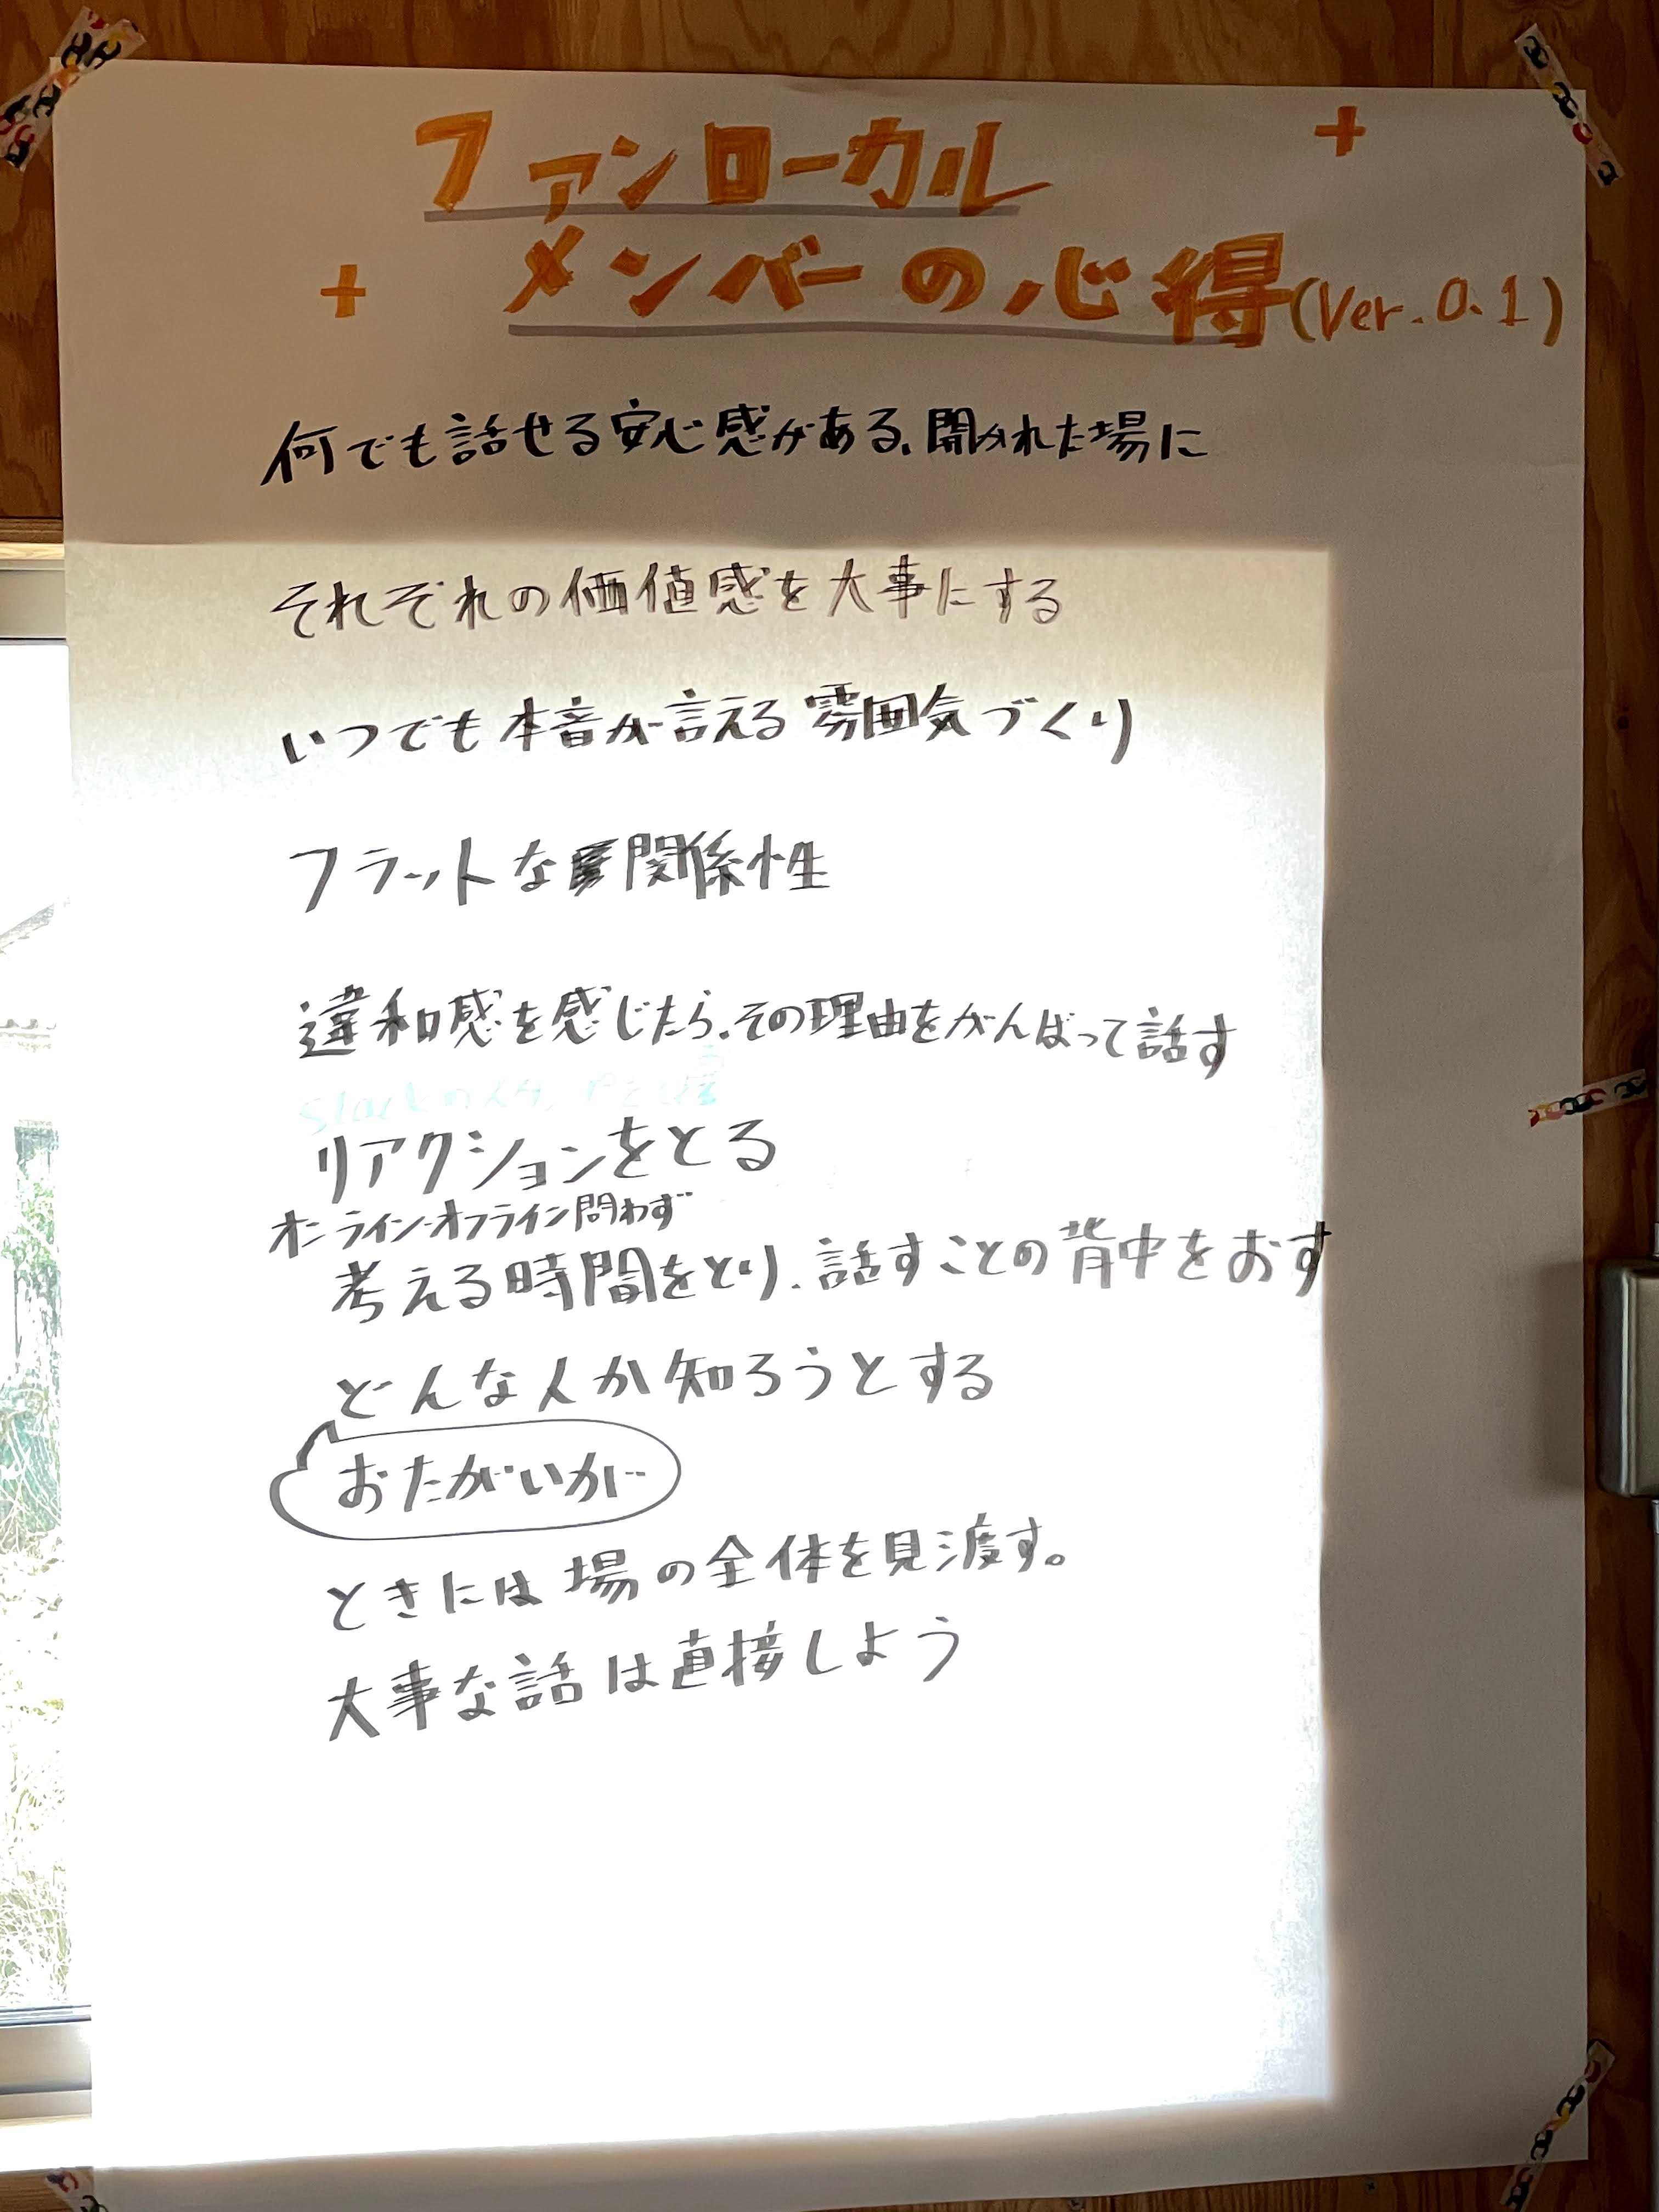 ファンローカル
メンバーの心得(Ver.0.1)
何でも話せる安心感がある、開かれた場に
それぞれの価値感を大事にする
いつでも本音が言える雰囲気づくり
フラットな関係性
違和感を感じたら、その理由をがんばって話す
Slackの
リアクションをとる
オンライン・オフライン問わず
考える時間をとり、話すことの背中をおす
どんな人か知ろうとする
おたがいが
ときには場の全体を見渡す。
大事な話は直接しよう